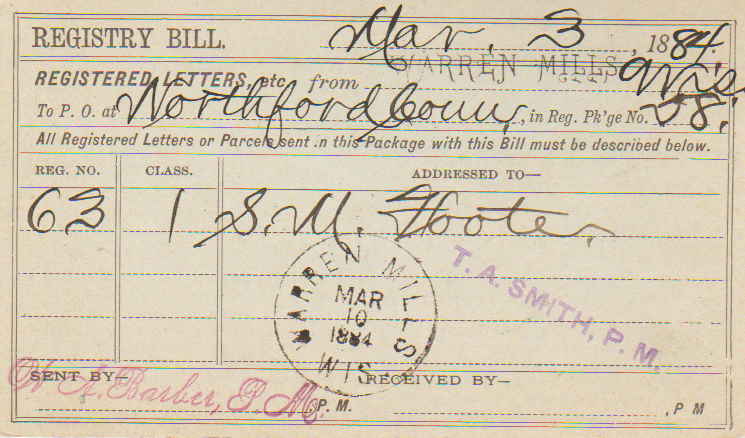 REGISTRY BILL. Mar. 3, 1884.
REGISTERED LETTERS, etc., from WARREN MILLS Wis
To P. O. at Northford Conn., in Reg. Pk'ge No. 58.
All Registered Letters or Parcels sent in this Package with this Bill must be described below.
REG. NO. CLASS. ADDRESSED TO—
63 1 S. M. Foote.
WARREN MILLS
MAR
10
1884
WIS.
T. A. SMITH, P. M.
SENT BY RECEIVED BY—
Barber, P. M. P. M. , P M